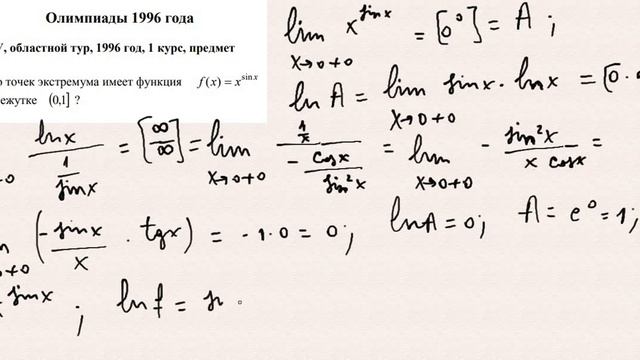 Олимпиады 1996 года
, областной тур, 1996 год, 1 курс, предмет
точек экстремума имеет функция f(x) = x^{sin x}
(0,1] ?
lim_{x→0+0} x^{sin x} = [0^0] = A ;
ln A = lim_{x→0+0} sin x · ln x = [0 ·
\frac{ln x}{\frac{1}{sin x}} = [\frac{∞}{∞}] = lim_{x→0+0} \frac{\frac{1}{x}}{-\frac{cos x}{sin^2 x}} = lim_{x→0+0} - \frac{sin^2 x}{x cos x} =
(-\frac{sin x}{x} · tg x) = -1·0 = 0 ; ln A = 0 ; A = e^0 = 1 ;
sin x ; ln f =